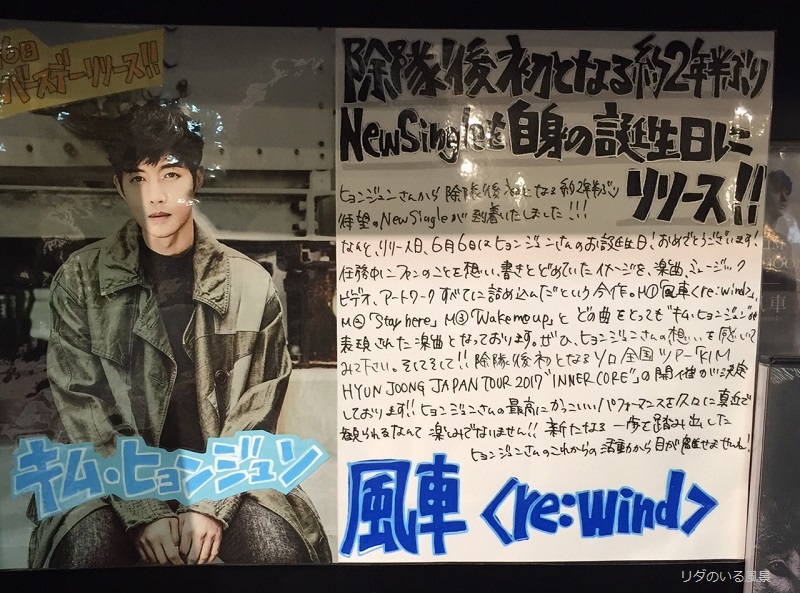 6日
バースデーリリース!!
除隊後初となる約2年半ぶり
NewSingleを自身の誕生日に
リリース!!
ヒョンジュンさんから除隊後初となる約2年半ぶり
待望のNewSingleが到着いたしました!!!
なんと、リリース日、6月6日はヒョンジュンさんのお誕生日!おめでとうございます!
任務中にファンのことを想い、書きとどめていたイメージを、楽曲、ミュージック
ビデオ、アートワークすべてに詰め込んだという今作。M①「風車<re:wind>」、
M②「Stay here」M③「Wake me up」とどの曲をとっても"キム・ヒョンジュン"が
表現された楽曲となっております。ぜひ、ヒョンジュンさんの想いを感じて
みて下さい。そしてそして!!除隊後初となるソロ全国ツアー"KIM
HYUN JOONG JAPAN TOUR 2017"INNER CORE"の開催が決定
しております!!ヒョンジュンさんの最高にかっこいいパフォーマンスを久々に真近で
観られるなんて楽しみでないません!!新たなる一歩を踏み出した
ヒョンジュンさんのこれからの活動から目が離せません!
キム・ヒョンジュン
風車<re:wind>
リダのいる風景